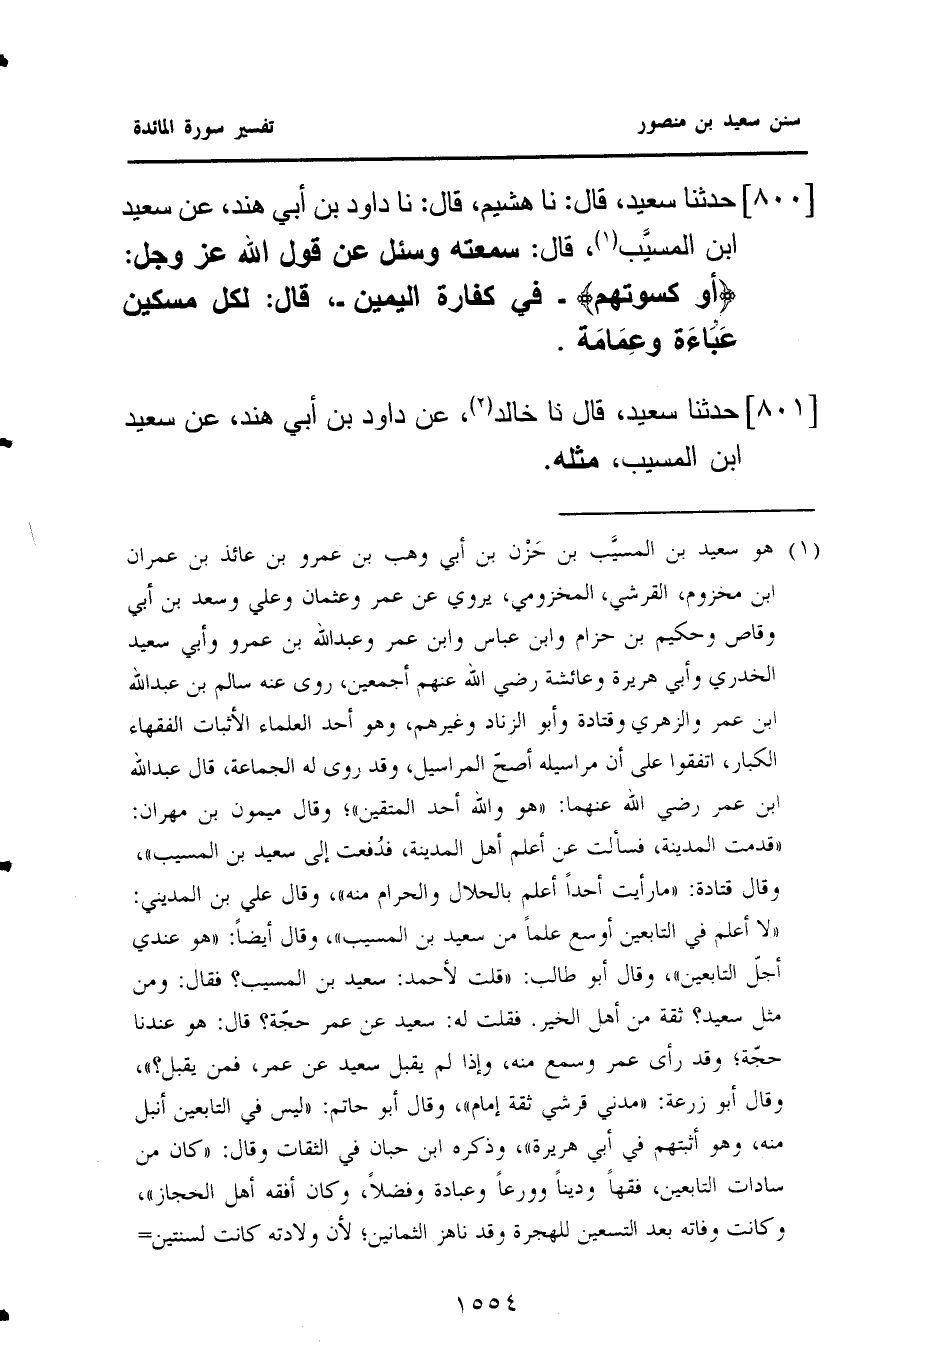 سنن سعيد بن منصور
تفسير سورة المائدة
[٨٠٠] حدثنا سعيد، قال: نا هشيم، قال: نا داود بن أبي هند، عن سعيد
ابن المسيَّب(١)، قال: سمعته وسئل عن قول الله عز وجل:
﴿أو كسوتهم﴾ ـ في كفارة اليمين ـ، قال: لكل مسكين
عَبَاءَة وعِمَامَة .
[٨٠١] حدثنا سعيد، قال نا خالد(٢)، عن داود بن أبي هند، عن سعيد
ابن المسيب، مثله.
(١) هو سعيد بن المسيَّب بن حَزْن بن أبي وهب بن عمرو بن عائذ بن عمران
ابن مخزوم، القرشي، المخزومي، يروي عن عمر وعثمان وعلي وسعد بن أبي
وقاص وحكيم بن حزام وابن عباس وابن عمر وعبدالله بن عمرو وأبي سعيد
الخدري وأبي هريرة وعائشة رضي الله عنهم أجمعين، روى عنه سالم بن عبدالله
ابن عمر والزهري وقتادة وأبو الزناد وغيرهم، وهو أحد العلماء الأثبات الفقهاء
الكبار، اتفقوا على أن مراسيله أصحّ المراسيل، وقد روى له الجماعة، قال عبدالله
ابن عمر رضي الله عنهما: «هو والله أحد المتقين»؛ وقال ميمون بن مهران:
«قدمت المدينة، فسألت عن أعلم أهل المدينة، فدُفعت إلى سعيد بن المسيب»،
وقال قتادة: «مارأيت أحداً أعلم بالحلال والحرام منه»، وقال علي بن المديني:
«لا أعلم في التابعين أوسع علماً من سعيد بن المسيب»، وقال أيضاً: «هو عندي
أجلّ التابعين»، وقال أبو طالب: «قلت لأحمد: سعيد بن المسيب؟ فقال: ومن
مثل سعيد؟ ثقة من أهل الخير. فقلت له: سعيد عن عمر حجّة؟ قال: هو عندنا
حجّة؛ وقد رأى عمر وسمع منه، وإذا لم يقبل سعيد عن عمر، فمن يقبل؟»،
وقال أبو زرعة: «مدني قرشي ثقة إمام»، وقال أبو حاتم: «ليس في التابعين أنبل
منه، وهو أثبتهم في أبي هريرة»، وذكره ابن حبان في الثقات وقال: «كان من
سادات التابعين، فقهاً وديناً وورعاً وعبادة وفضلاً، وكان أفقه أهل الحجاز»،
وكانت وفاته بعد التسعين للهجرة وقد ناهز الثمانين؛ لأن ولادته كانت لسنتين=
١٥٥٤